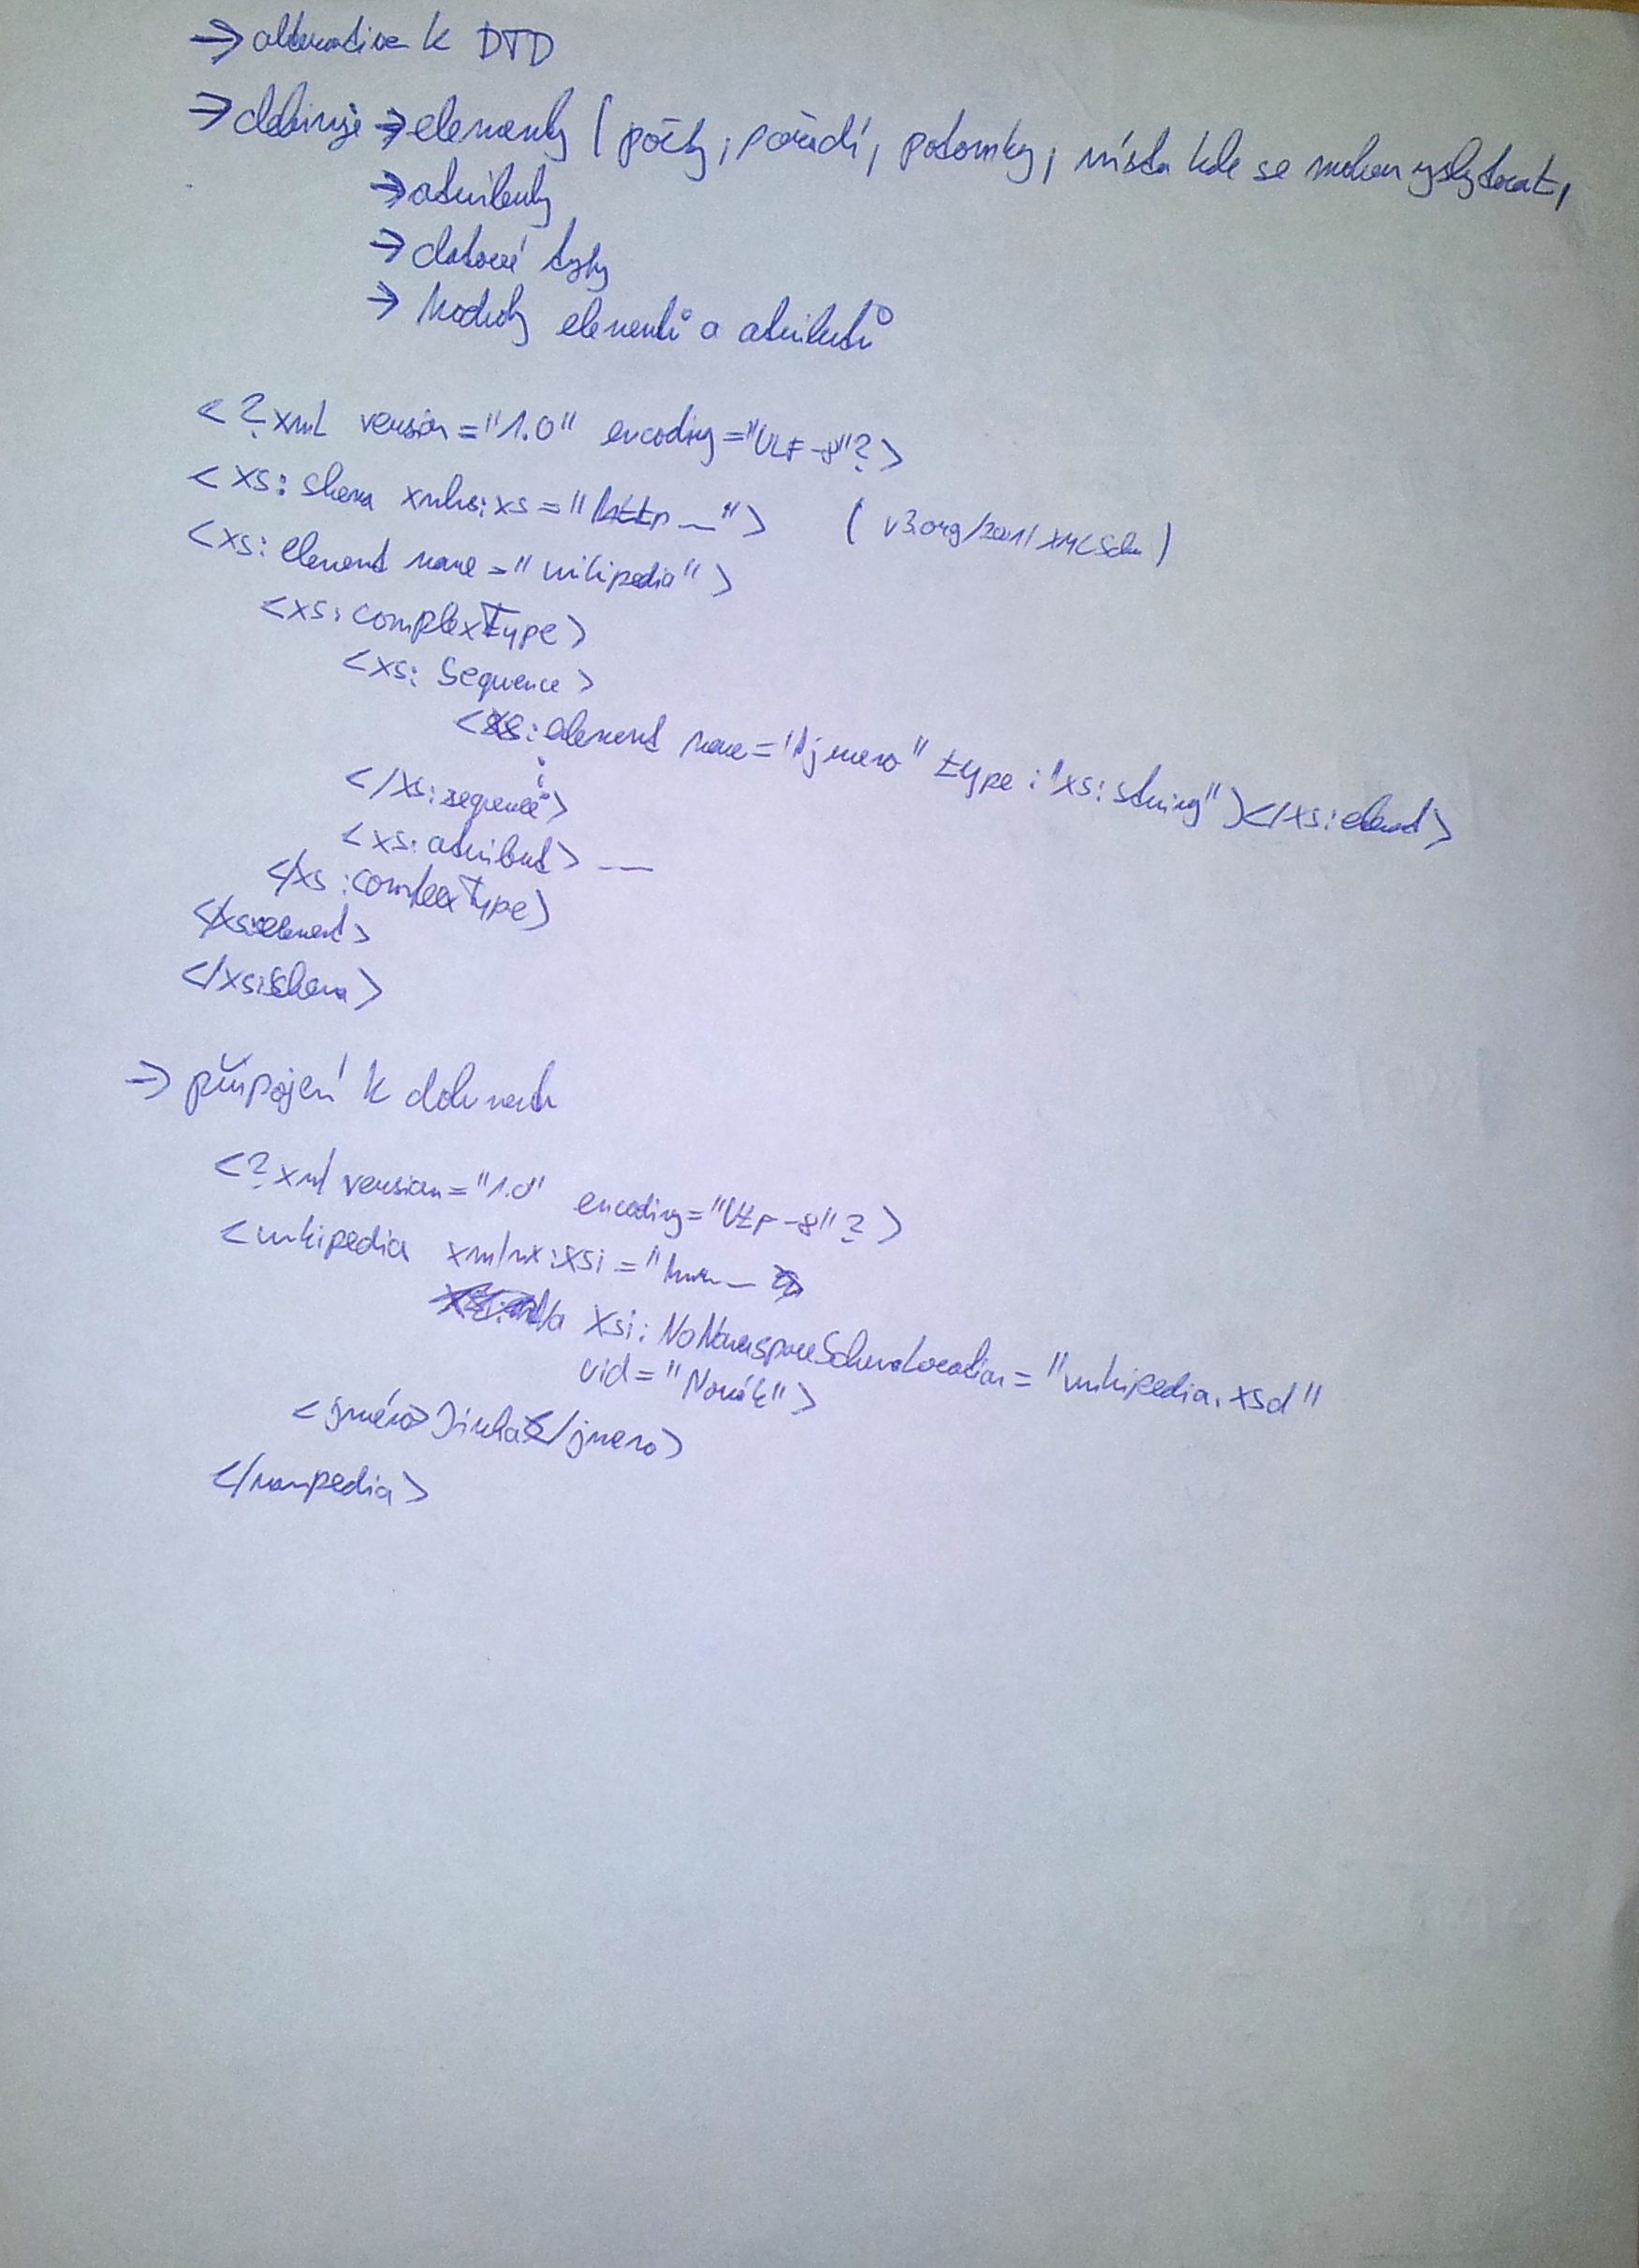 → alternative k DTD
→ definuje → elementy ( počty, pořadí, potomky, místa kde se mohou vyskytovat,
→ atributy
→ datové typy
→ hodnoty elementů a atributů
<?xml version="1.0" encoding="UTF-8"?>
<xs:shema xmlns:xs="http _"> ( v3.org/2001/XMLSchm )
<xs:element name="wikipedia">
<xs:complexType>
<xs:Sequence>
<xs:element name="jmeno" type:"xs:string"></xs:element>
</xs:sequence>
<xs:atribut> —
</xs:complexType>
</xs:element>
</xs:schema>
→ připojení k dokumentu
<?xml version="1.0" encoding="UTF-8"?>
<wikipedia xmlnx:xsi="
xsi:NoNamespaceSchemaLocation="wikipedia.xsd"
vid="Novák">
<jméno>Jirka</jmeno>
</wikipedia>